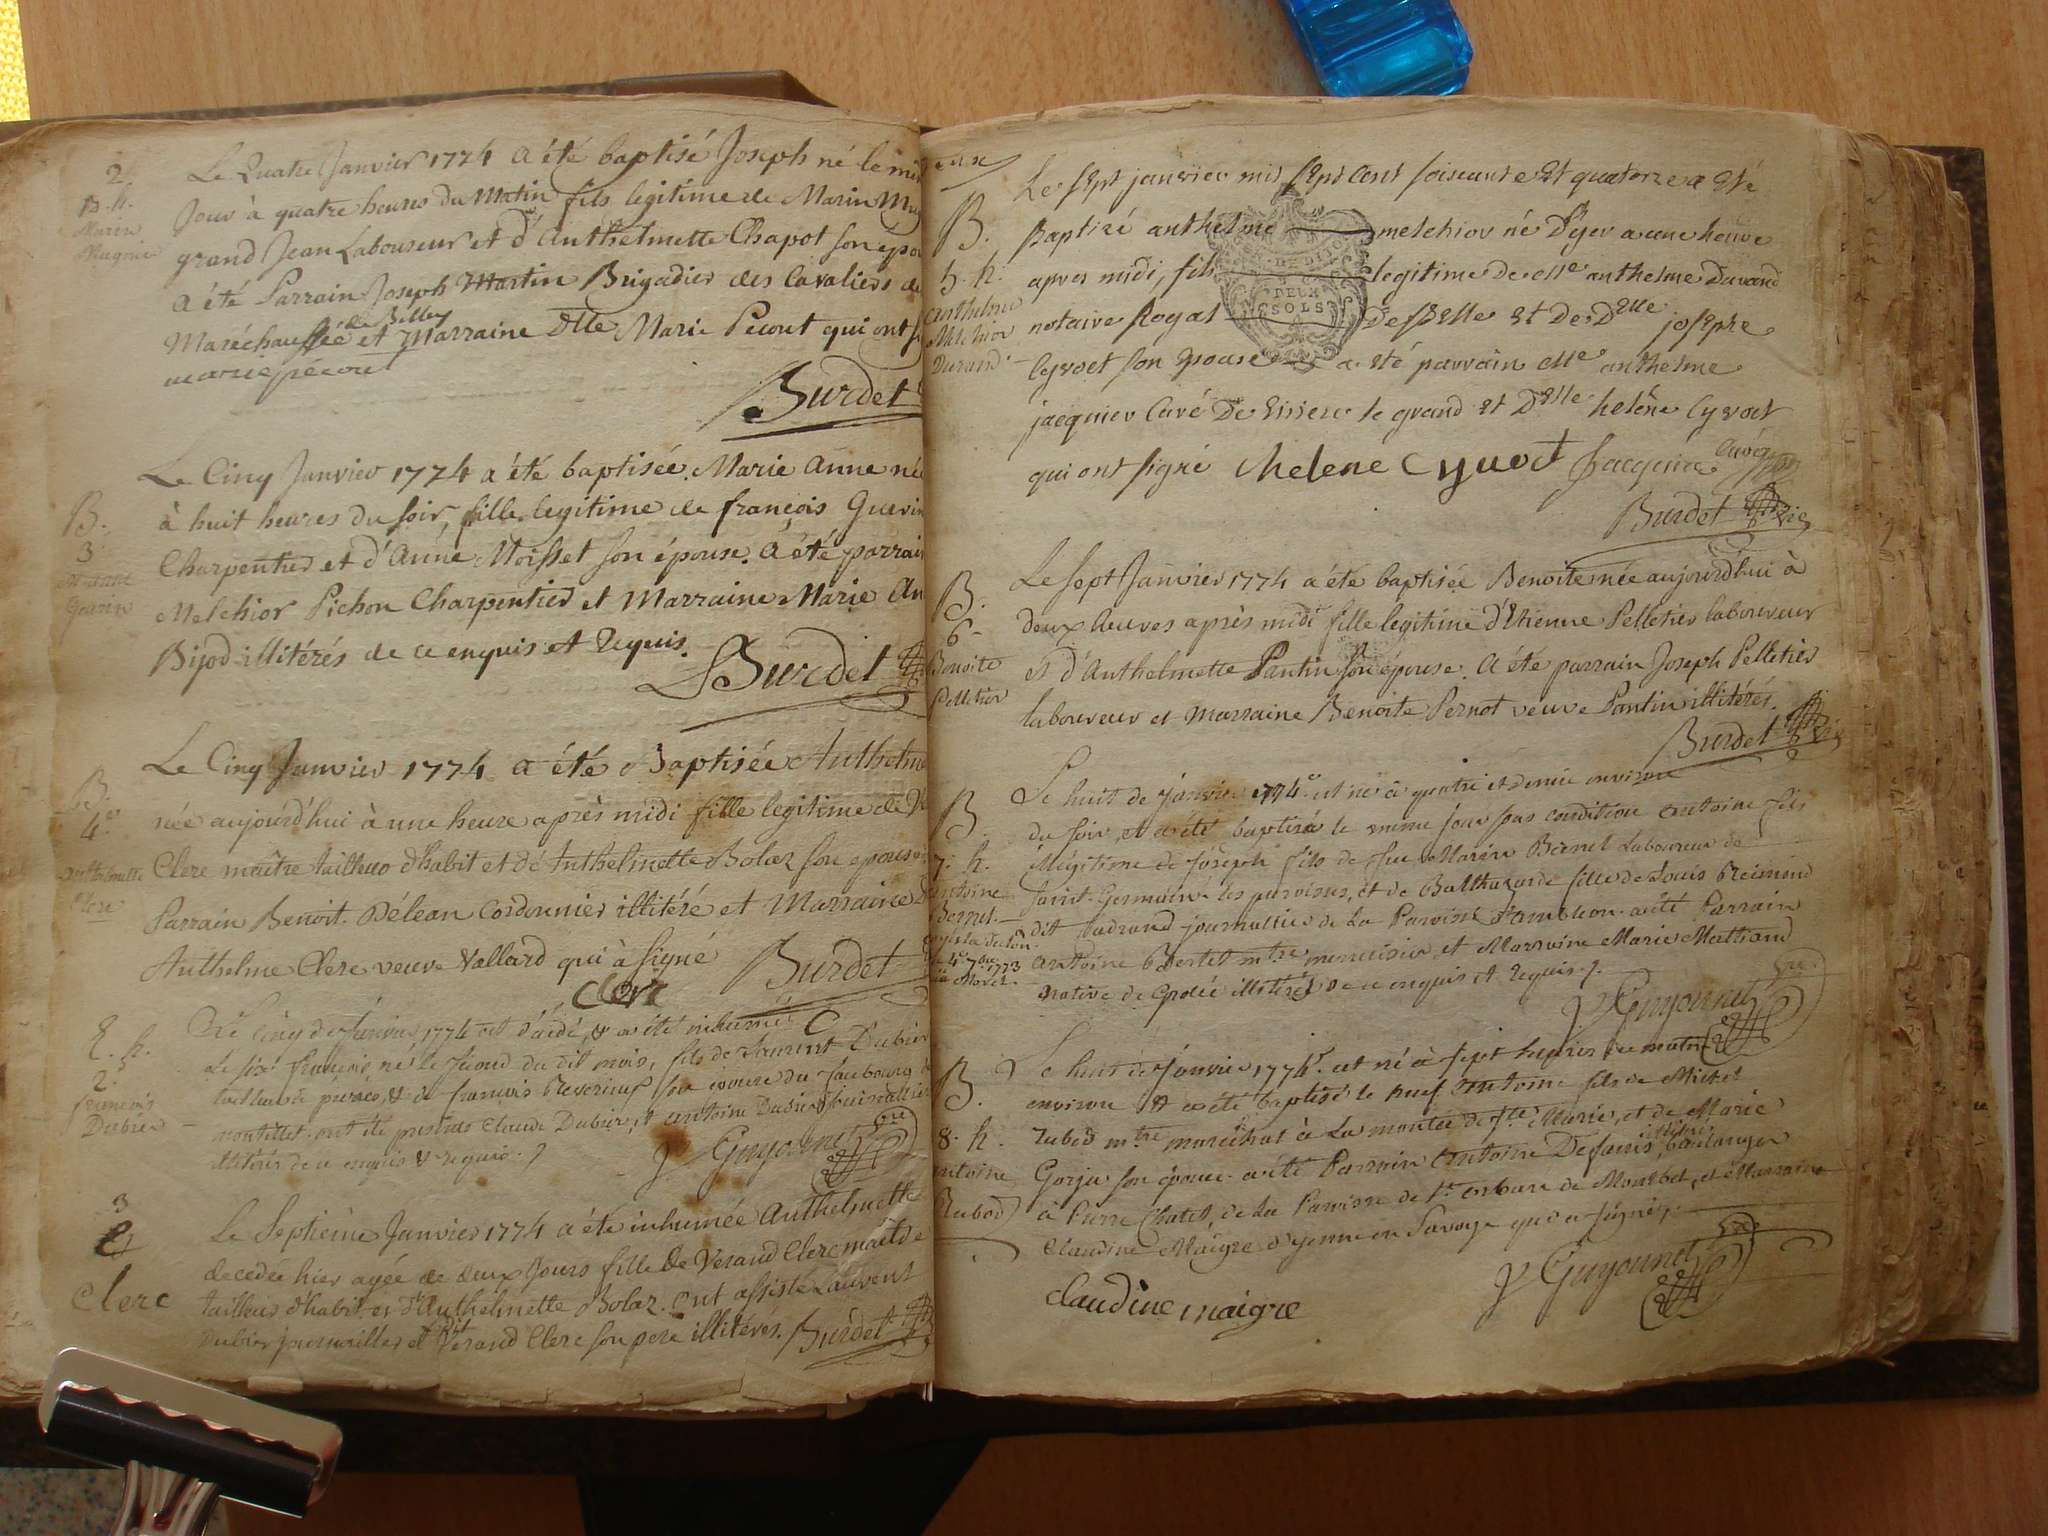 2
B. h.
Marin
Le Quatre Janvier 1774 a été baptisé Joseph né le
Jour à quatre heures du Matin fils legitime de Marin
grand Jean Laboureur et d'Anthelmette Chapot son
a été Parrain Joseph Martin Brigadier des Cavaliers de
Maréchaussée de Belley et Marraine Dlle Marie Pecout qui ont
marie pecout
Burdet
B.
3
Guerin
Le Cinq Janvier 1774 a été baptisée Marie Anne née
à huit heures du soir, fille legitime de françois Guerin
Charpentier et d'Anne Moisset son épouse. a été parrain
Melchior Pichon Charpentier et Marraine Marie An
Bijod illitérés de ce enquis et requis.
Burdet
B.
4.
Anthelmette
Clerc
Le Cinq Janvier 1774 a été Baptisée Anthelme
née aujourd'hui à une heure après midi fille legitime de
Clerc maître tailleur d'habit et de Anthelmette Bolaz son epouse
Parrain Benoit Délean Cordonnier illitéré et Marraine
Anthelme Clerc veuve Vallard qui à signé
Burdet
Clerc
E. h.
2.
françois
Dubier
Le Cinq de Janvier 1774 est décédé, & a été inhumé
le six françois né le second du dit mois, fils de Laurent Dubier
& de françois son épouse du faubourg
ont été présents Claude Dubier, et antoine Dubier journallier
illitérés de ce enquis & requis.
Guyonnet vre
3
E
Clerc
Le Septieme Janvier 1774 a été inhumée Anthelmette
decedée hier agée de deux Jours fille de Verand Clerc maît de
tailleur d'habit et d'Anthelmette Bolaz. ont assisté Laurent
Dubier journallier et dit Verand Clerc son pere illitérés. Burdet
B.
5. h.
anthelme
Melchior
Durand
Le sept janvier mil sept cent soiscante et quatorze a eté
Baptizé anthelme melchior né d'hyer a une heure
apres midi, fils legitime de Me anthelme Durand
notaire Royal de Belley et de Delle josephe
Cyvoct son epouse a eté parrain Me anthelme
jacquier Curé De le grand et Delle helene Cyvoct
qui ont signé helene Cyvoct Jacquier Curé
Burdet Vic
B.
6
Benoite
Pelletier
Le sept Janvier 1774 a été baptisée Benoite née aujourd'hui à
deux heures après midi fille legitime d'Etienne Pelletier laboureur
et d'Anthelmette Pantin son épouse. a été parrain Joseph Pelletier
laboureur et marraine Benoite Pernot veuve Pantin illitérés.
Burdet Vic
B.
7. h.
antoine
Bernet
le 4e 7bre 1773
Le huit de Janvier 1774. est né à quatre et demie environ
du soir, et a été baptisé le meme jour sous condition antoine fils
illégitime de Joseph fils de feu Marin Bernet Laboureur de
saint Germain les paroisses, et de Balthazarde fille de Louis Reimond
dit journallier de La Paroisse d'ambleon. a été Parrain
antoine mtre menuisier, et Marraine Marie Mathand
native de illitérés de ce enquis et requis.
Guyonnet vre
B.
8. h.
antoine
Rubod
Le huit de Janvier 1774. est né à sept heures du matin
environ & a été baptisé le neuf antoine fils de Michel
Rubod mtre maréchal à La montée de ste Marie, et de Marie
Gorju son épouse. a été Parrain antoine Desfauris illitéré, boulanger
à Pierre Chatel, de La Paroisse de et Marraine
Claudine Maigre d'yenne en Savoye qui a signé.
Guyonnet vre
claudine maigre